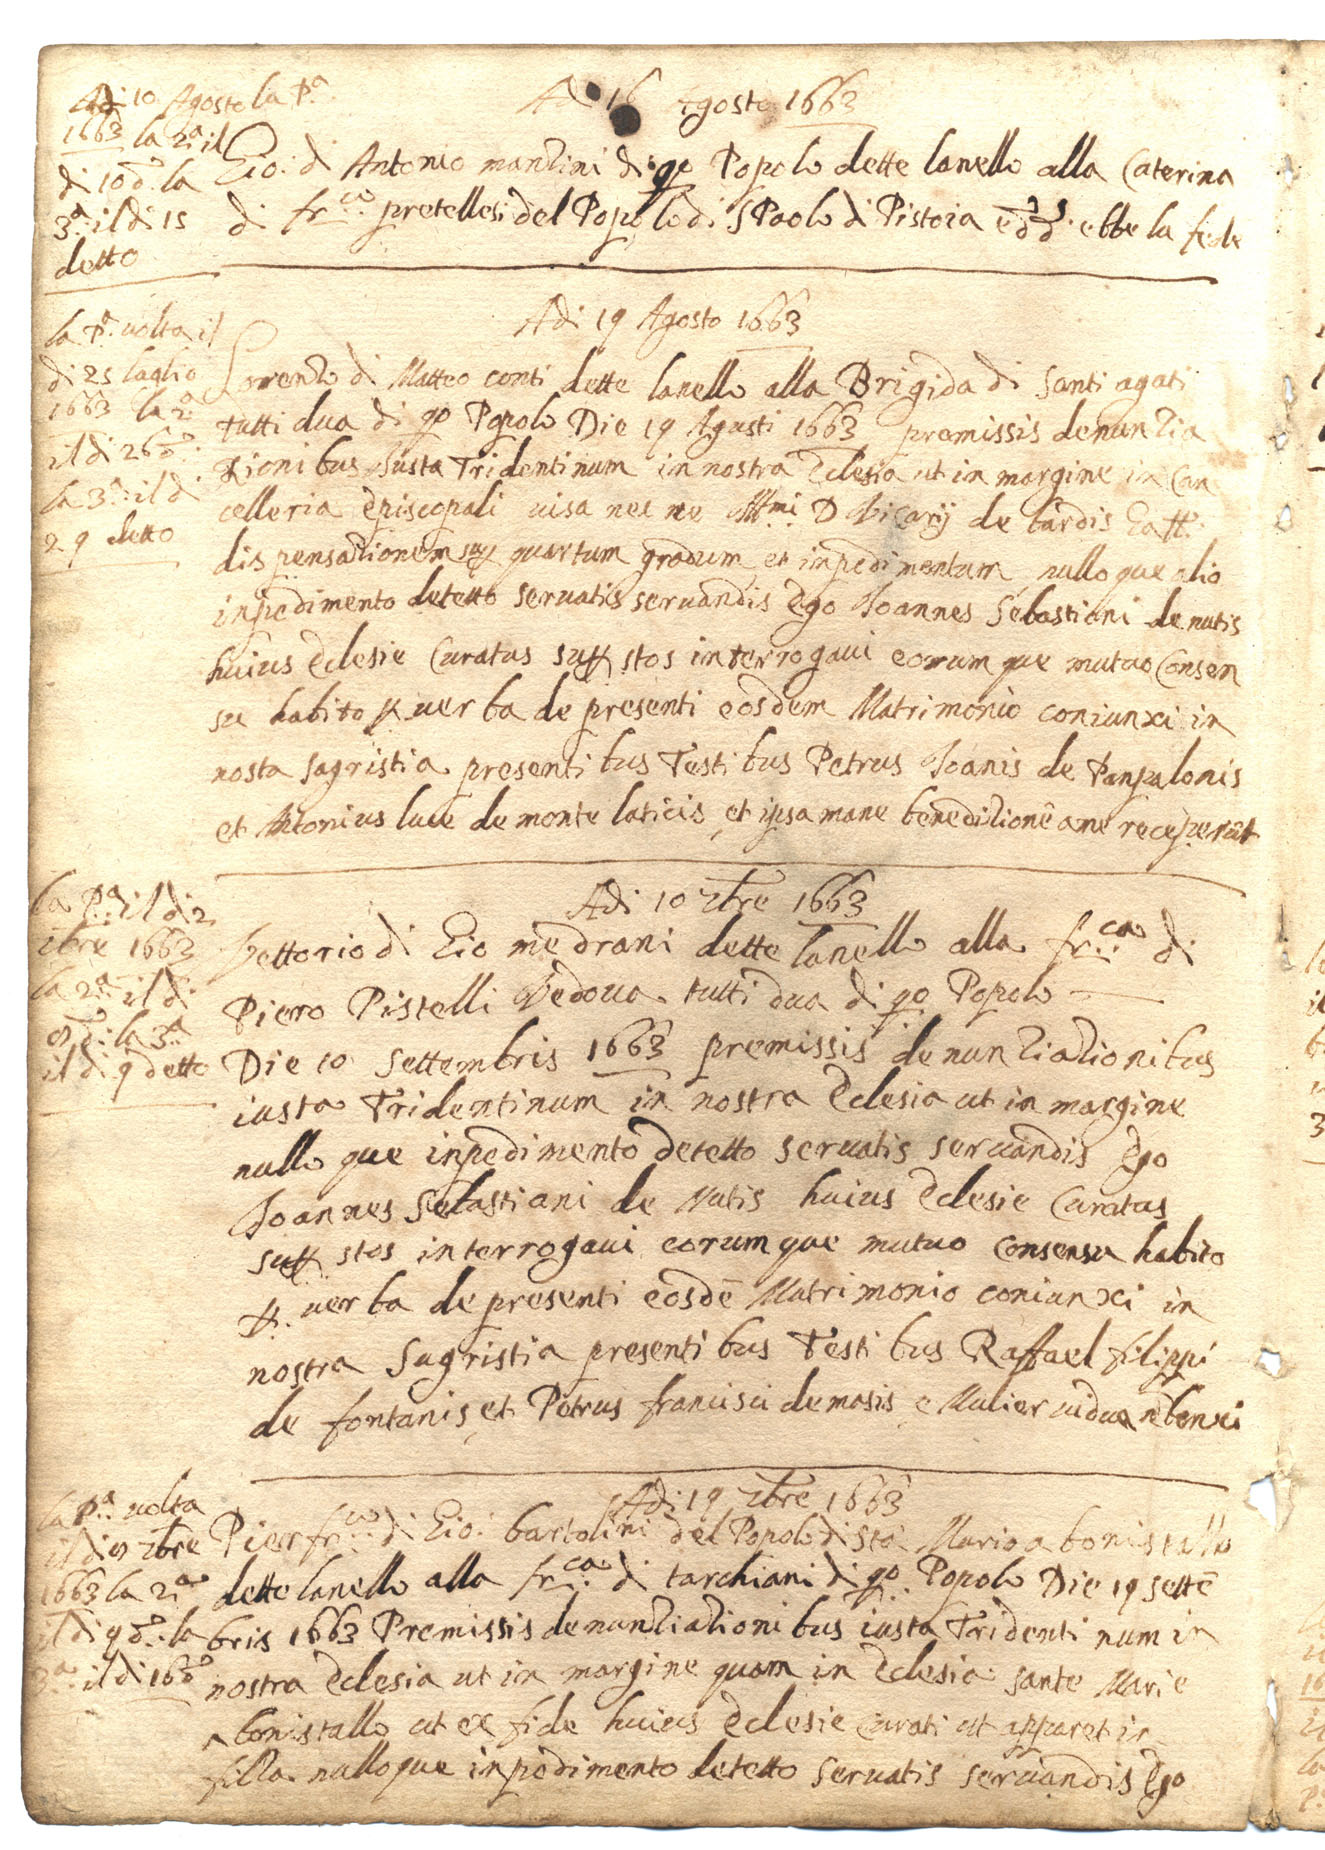 Adi 10 Agosto la Pa
1663 la 2a il
di 10 do la
3a il di 15
detto
Adi 16 Agosto 1663
Gio: di Antonio manzini di qo Popolo dette lanello alla Caterina
di frco pretellesi del Popolo di S Paolo di Pistoia e ebbe la fede
la Pa uolta il
di 25 luglio
1663 la 2a
il di 26 do
la 3a il di
29 detto
Adi 19 Agosto 1663
Lorenzo di Matteo conti dette lanello alla Brigida di Santi agati
tutti dua di qo Popolo Die 19 Agusti 1663 premissis denunzia
zionibus Iusta Tridentinum in nostra Eclesia ut in margine in Can
celleria Episcopali uisa Illmi D Vicarij de bardis
dispensazionem quartum gradum et inpedimentum nulloque alio
inpedimento detetto seruatis seruandis Ego Ioannes Sebastiani de natis
huius Eclesie Curatus stos interrogaui eorumque mutuo Consen
su habito p. uerba de presenti eosdem Matrimonio coniunxi in
nosta sagristia presentibus Testibus Petrus Ioanis de Panpalonis
et Antonius luce de monte laticis et ipsa mane benedizionē a me receperūt
la Pa il di 2
7bre 1663
la 2a il di
8 do la 3a
il di 9 detto
Adi 10 7bre 1663
Vettorio di Gio medrani dette lanello alla frca di
Piero Pistelli Vedoua tutti dua di qo Popolo
Die 10 Settembris 1663 premissis denunziazionibus
iusta Tridentinum in nostra Eclesia ut in margine
nulloque inpedimento detetto seruatis seruandis Ego
Ioannes Sebastiani de Natis huius Eclesie Curatus
stos interrogaui eorumque mutuo consensu habito
p. uerba de presenti eosdē Matrimonio coniunxi in
nostra Sagristia presentibus Testibus Raffael filippi
de fontanis et Petrus francisci de masis e Mulier uidua
la Pa uolta
il di 8 7bre
1663 la 2a
il di 9 do la
3a il di 16 do
Adi 19 7bre 1663
Pier frco di Gio: bartolini del Popolo di Sta Maria a bonistallo
dette lanello alla frca di tarchiani di qo Popolo Die 19 settē
bris 1663 Premissis denunziazionibus iusta Tridentinum in
nostra Eclesia ut in margine quam in Eclesia sante Marie
a bonistallo ut ex fide huius Eclesie curati ut apparet in
filza nulloque inpedimento detetto seruatis seruandis Ego